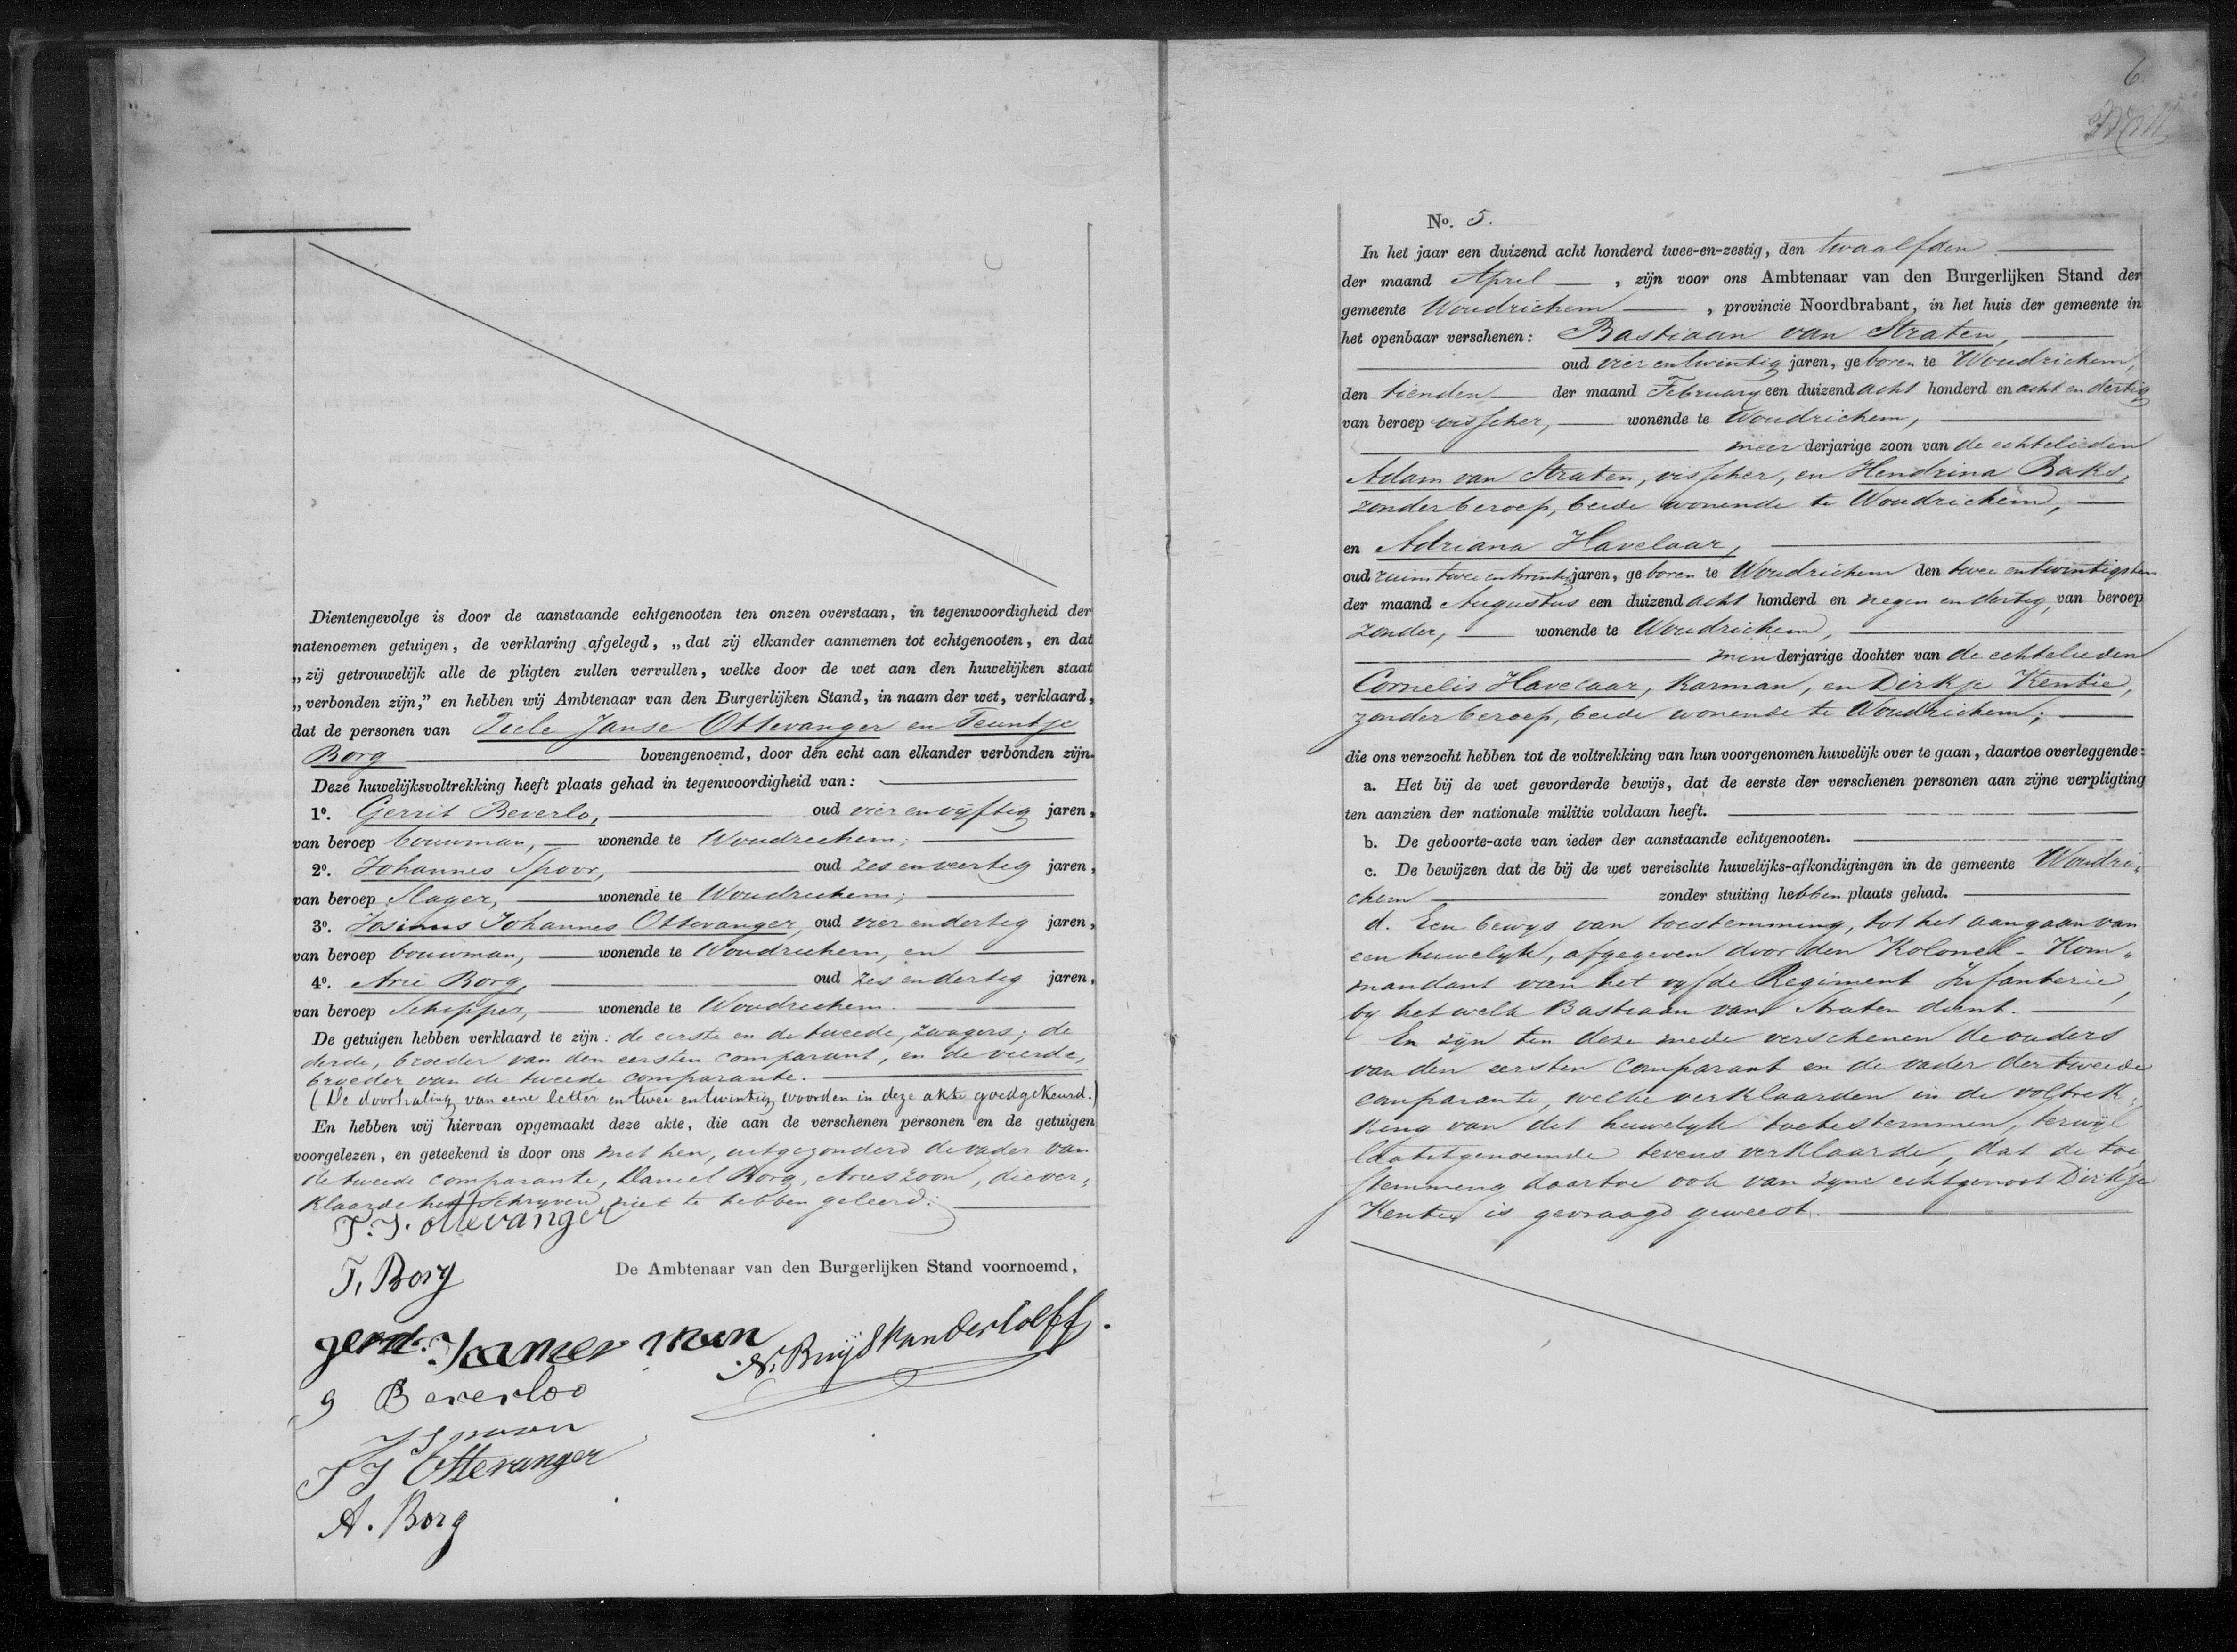 Dientengevolge is door de aanstaande echtgenooten ten onzen overstaan, in tegenwoordigheid der
natenoemen getuigen, de verklaring afgelegd, „dat zij elkander aannemen tot echtgenooten, en dat
„zij getrouwelijk alle de pligten zullen vervullen, welke door de wet aan den huwelijken staat
„verbonden zijn,” en hebben wij Ambtenaar van den Burgerlijken Stand, in naam der wet, verklaard,
dat de personen van Teele Janse Ottevanger en Teuntje
Borg bovengenoemd, door den echt aan elkander verbonden zijn.
Deze huwelijksvoltrekking heeft plaats gehad in tegenwoordigheid van:
1o. Gerrit Beverlo, oud vier en vijftig jaren,
van beroep bouwman, wonende te Woudrichem;
2o. Johannes Spoor, oud zes en veertig jaren,
van beroep Slager, wonende te Woudrichem;
3o. Josinus Johannes Ottevanger, oud vier en dertig jaren,
van beroep bouwman, wonende te Woudrichem, en
4o. Arie Borg, oud zes en dertig jaren,
van beroep Schipper, wonende te Woudrichem.
De getuigen hebben verklaard te zijn: de eerste en de tweede, zwagers; de
derde, broeder van den eersten comparant, en de vierde,
broeder van de tweede comparante.
(De doorhaling van eene letter en twee en twintig woorden in deze akte goedgekeurd.)
En hebben wij hiervan opgemaakt deze akte, die aan de verschenen personen en de getuigen
voorgelezen, en geteekend is door ons met hen, uitgezonderd de vader van
de tweede comparante, Daniel Borg, Arieszoon, die ver,
klaarde het schryven niet te hebben geleerd.
T. J. Ottevanger
T. Borg
De Ambtenaar van den Burgerlijken Stand voornoemd,
N. Ruijs van der
G Beverloo
J Spoor
J J Ottevanger
A. Borg
6.
No. 5.
In het jaar een duizend acht honderd twee-en-zestig, den twaalfden
der maand April, zijn voor ons Ambtenaar van den Burgerlijken Stand der
gemeente Woudrichem, provincie Noordbrabant, in het huis der gemeente in
het openbaar verschenen: Bastiaan van Straten,
oud vier en twintig jaren, geboren te Woudrichem,
den tienden der maand February een duizend acht honderd en acht en dertig
van beroep visscher, wonende te Woudrichem,
meerderjarige zoon van de echtelieden
Adam van Straten, visscher, en Hendrina Baks,
zonder beroep, beide wonende te Woudrichem,
en Adriana Havelaar,
oud ruim twee en twintig jaren, geboren te Woudrichem den twee en twintigsten
der maand Augustus een duizend acht honderd en negen en dertig, van beroep
zonder, wonende te Woudrichem,
minderjarige dochter van de echtelieden
Cornelis Havelaar, karman, en Dirkje Kentie,
zonder beroep, beide wonende te Woudrichem;
die ons verzocht hebben tot de voltrekking van hun voorgenomen huwelijk over te gaan, daartoe overleggende:
a. Het bij de wet gevorderde bewijs, dat de eerste der verschenen personen aan zijne verpligting
ten aanzien der nationale militie voldaan heeft.
b. De geboorte-acte van ieder der aanstaande echtgenooten.
c. De bewijzen dat de bij de wet vereischte huwelijks-afkondigingen in de gemeente Woudri,
chem zonder stuiting hebben plaats gehad.
d. Een bewys van toestemming, tot het aangaan van
een huwelyk, afgegeven door den Kolonel-Kom„
mandant van het vyfde Regiment Infanterie,
by het welk Bastiaan van Straten dient.
En zyn ten deze mede verschenen de ouders
van den eersten comparant en de vader der tweede
comparante, welke verklaarden in de voltrek,
king van dit huwelyk toetestemmen, terwyl
laatstgenoemde tevens verklaarde, dat de toe
stemming daartoe ook van zyne echtgenoot Dirkje
Kentie is gevraagd geweest.